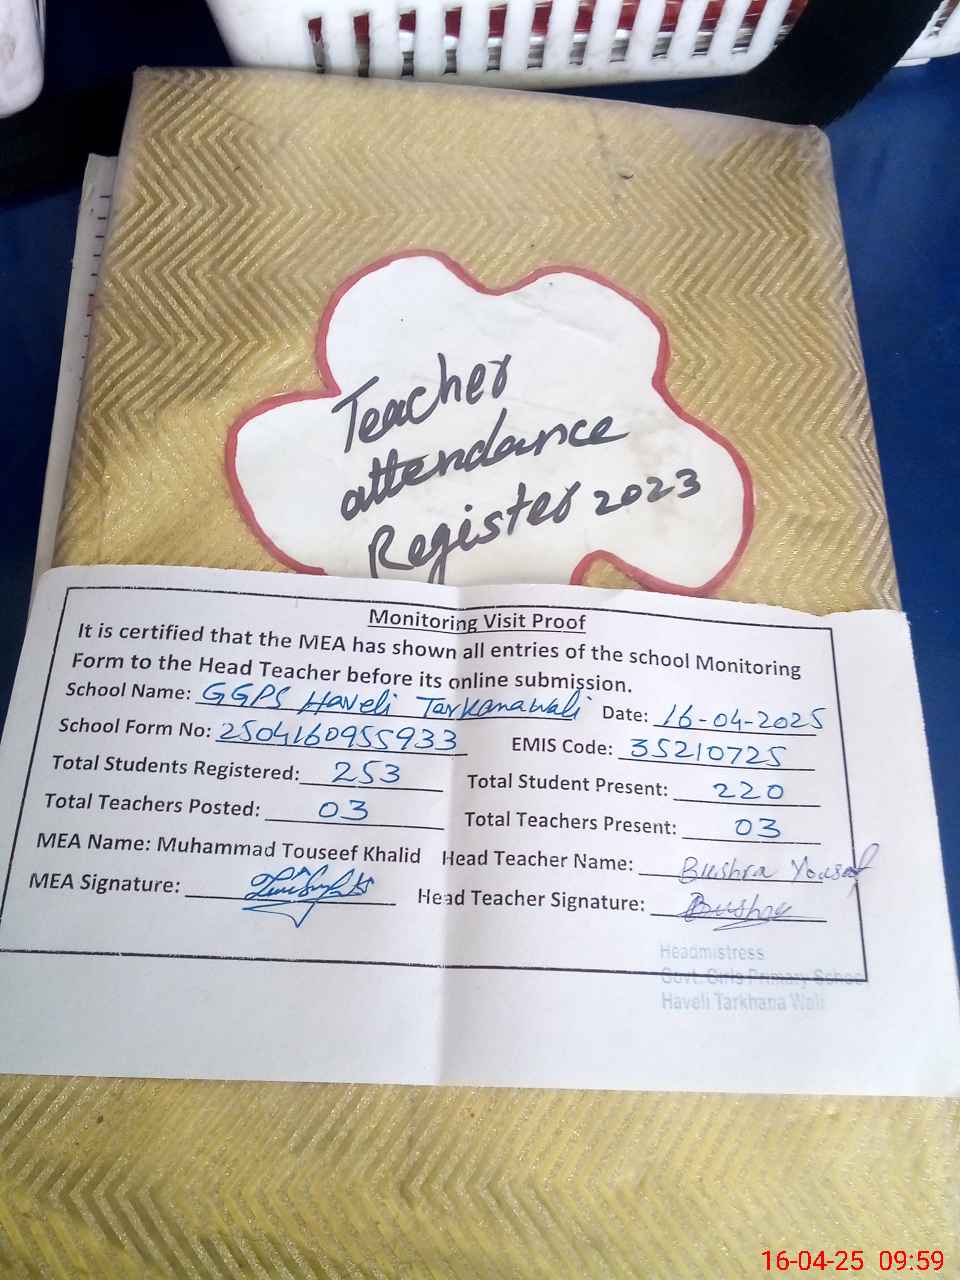 Teacher
attendance
Register 2023
Monitoring Visit Proof
It is certified that the MEA has shown all entries of the school Monitoring
Form to the Head Teacher before its online submission.
School Name: GGPS Haveli Tarkanawali Date: 16-04-2025
School Form No: 250416095933 EMIS Code: 35210725
Total Students Registered: 253 Total Student Present: 220
Total Teachers Posted: 03 Total Teachers Present: 03
MEA Name: Muhammad Touseef Khalid Head Teacher Name: Bushra Yousaf
MEA Signature: Head Teacher Signature: Bushra
Headmistress
Govt. Girls Primary School
Haveli Tarkhana Wali
16-04-25 09:59